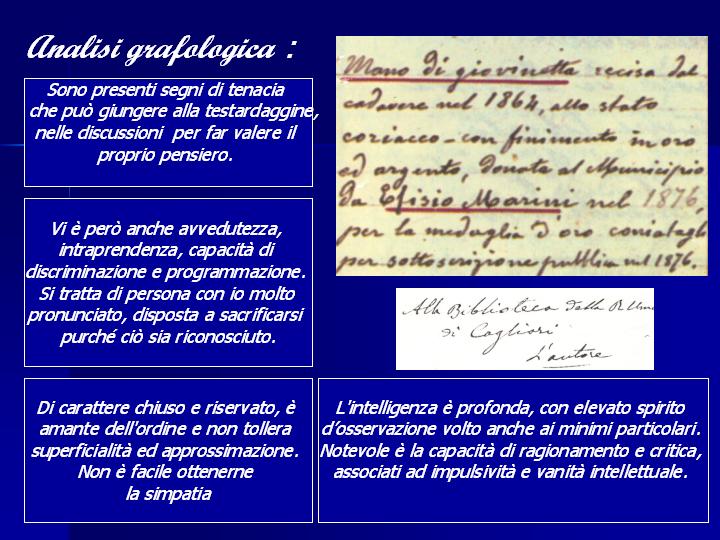 Analisi grafologica :
Sono presenti segni di tenacia
che può giungere alla testardaggine,
nelle discussioni per far valere il
proprio pensiero.
Vi è però anche avvedutezza,
intraprendenza, capacità di
discriminazione e programmazione.
Si tratta di persona con io molto
pronunciato, disposta a sacrificarsi
purché ciò sia riconosciuto.
Di carattere chiuso e riservato, è
amante dell'ordine e non tollera
superficialità ed approssimazione.
Non è facile ottenerne
la simpatia
Mano di giovinetta recisa dal
cadavere nel 1864, allo stato
coriacco - con finimento in oro
ed argento, donata al Municipio
da Efisio Marini nel 1876,
per la medaglia d'oro coniatagli
per sottoscrizione pubblica nel 1876.
Alla Biblioteca della R.
di Cagliari
L'autore
L'intelligenza è profonda, con elevato spirito
d'osservazione volto anche ai minimi particolari.
Notevole è la capacità di ragionamento e critica,
associati ad impulsività e vanità intellettuale.